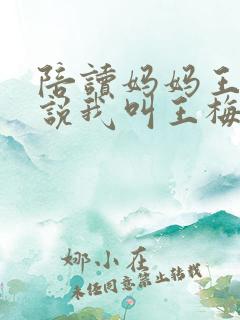 陪讀妈妈王
說我叫王梅
娜小在
未经同意禁止转载